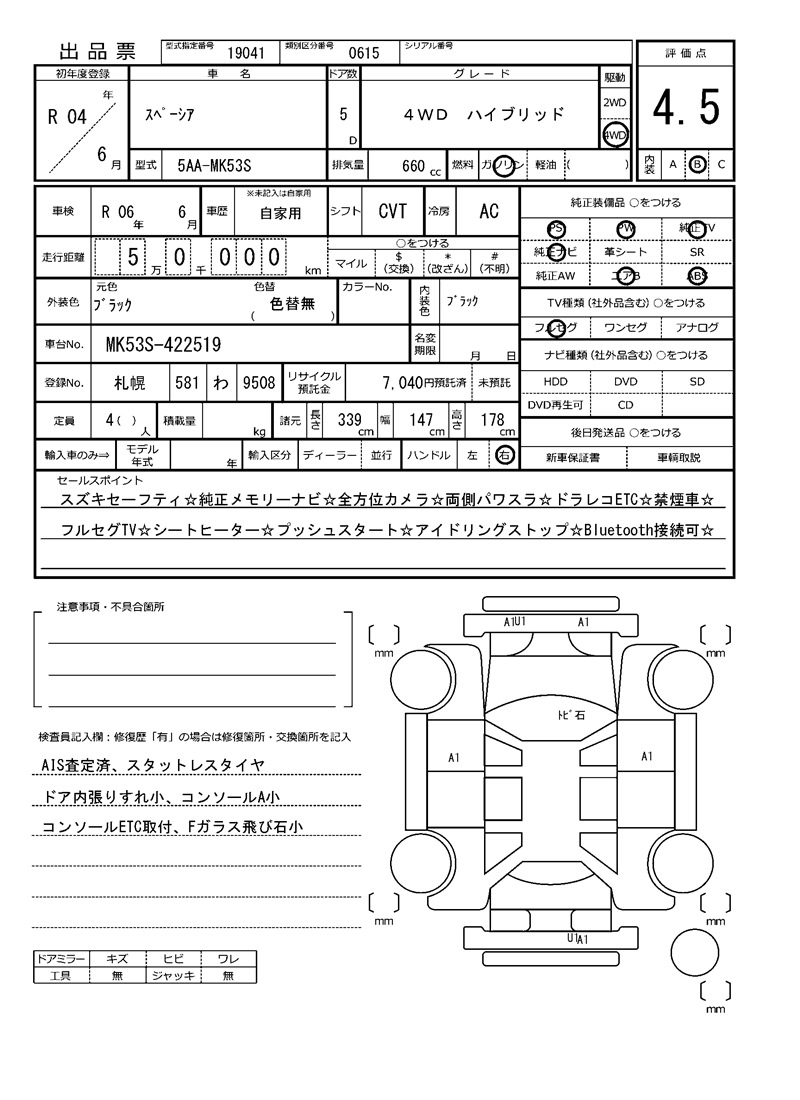 出品票 型式指定番号 19041 類別区分番号 0615 シリアル番号 評価点
初年度登録 車名 ドア数 グレード 駆動 4.5
R 04 年 6月 ｽﾍﾟｰｼｱ 5 D 4WD ハイブリッド 2WD
4WD
型式 5AA-MK53S 排気量 660 cc 燃料 ガソリン 軽油 ( ) 内装 A B C
車検 R 06年 6月 車歴 ※未記入は自家用 自家用 シフト CVT 冷房 AC 純正装備品 ○をつける
PS PW 純正TV
走行距離 5万0千000km ○をつける 純正ナビ 革シート SR
マイル $(交換) *(改ざん) #(不明) 純正AW エアB ABS
外装色 元色 ﾌﾞﾗｯｸ 色替 ( 色替無 ) カラーNo. 内装色 ﾌﾞﾗｯｸ TV種類(社外品含む)○をつける
フルセグ ワンセグ アナログ
車台No. MK53S-422519 名変期限 月 日 ナビ種類(社外品含む)○をつける
登録No. 札幌 581 わ 9508 リサイクル預託金 7,040円預託済 未預託 HDD DVD SD
DVD再生可 CD
定員 4( )人 積載量 kg 諸元 長さ 339cm 幅 147cm 高さ 178cm 後日発送品 ○をつける
輸入車のみ⇒ モデル年式 年 輸入区分 ディーラー 並行 ハンドル 左 右 新車保証書 車輌取説
セールスポイント
スズキセーフティ☆純正メモリーナビ☆全方位カメラ☆両側パワスラ☆ドラレコETC☆禁煙車☆
フルセグTV☆シートヒーター☆プッシュスタート☆アイドリングストップ☆Bluetooth接続可☆
注意事項・不具合箇所
A1U1 A1
mm mm
ﾄﾋﾞ石
検査員記入欄：修復歴「有」の場合は修復箇所・交換箇所を記入
AIS査定済、スタットレスタイヤ
A1 A1
ドア内張りすれ小、コンソールA小
コンソールETC取付、Fガラス飛び石小
mm mm
U1A1
ドアミラー キズ ヒビ ワレ
工具 無 ジャッキ 無
mm